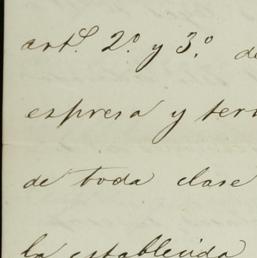 artſ. 2.º y 3.º de
espresa y ter
de toda clase
la establecida